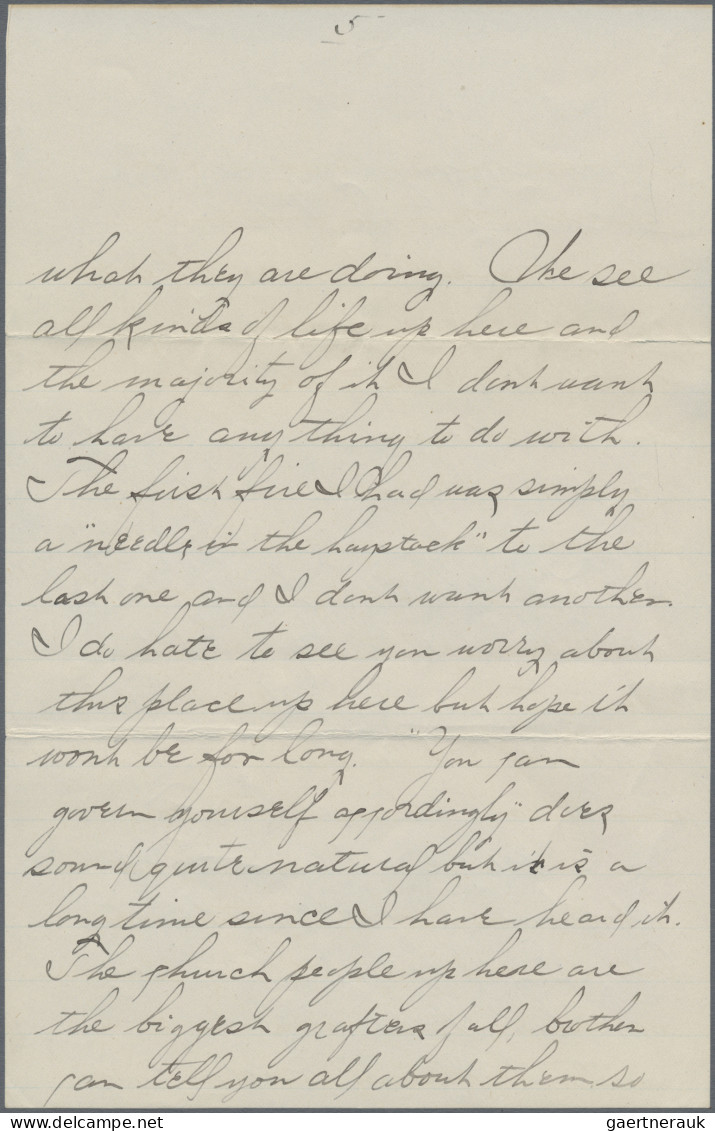 5
what they are doing. We see
all kinds of life up here and
the majority of it I dont want
to have any thing to do with.
The first fire I had was simply
a "needle in the haystack" to the
last one and I dont want another.
I do hate to see you worry about
this place up here but hope it
wont be for long. "You can
govern yourself accordingly" does
sound quite natural but it is a
long time since I have heard it.
The church people up here are
the biggest grafters of all, brother
can tell you all about them so
gaertnerauk